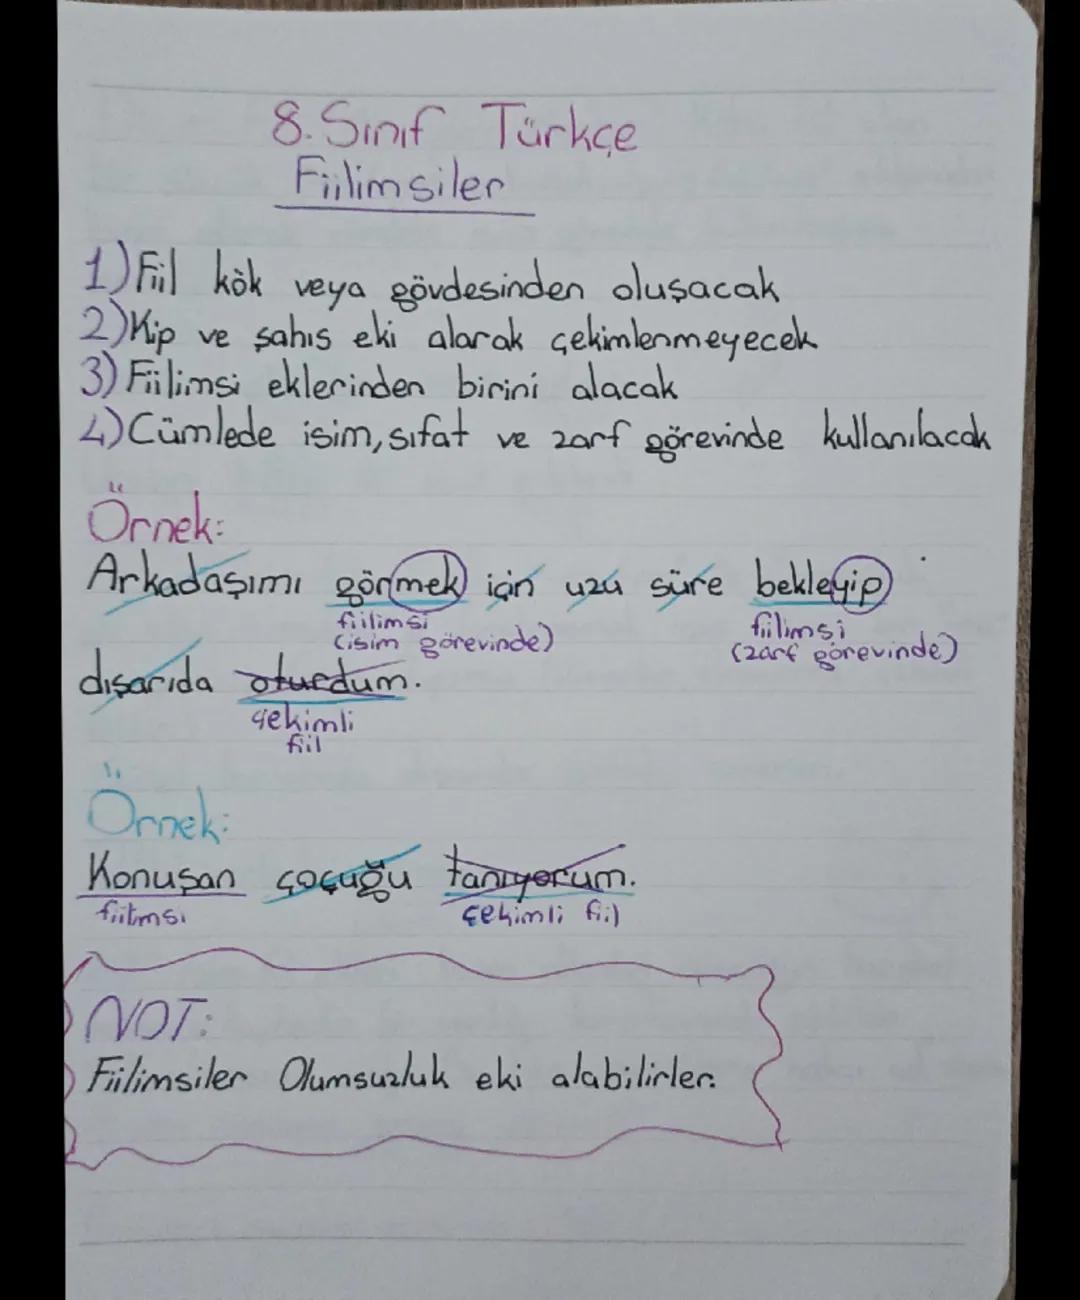 8. Sınıf Türkçe
Fiilimsiler
1) Fiil kök veya gövdesinden oluşacak
2) Kip ve şahıs eki alarak çekimlenmeyecek
3) Fiilimsi eklerinden birini alacak
4) Cümlede isim, sıfat ve zarf görevinde kullanılacak
Örnek:
Arkadaşımı görmek için uzu süre bekleyip
fiilimsi fiilimsi
(isim görevinde) (zarf görevinde)
dışarıda oturdum.
çekimli
fiil
Örnek:
Konuşan çoçuğu tanıyorum.
fiilmsi çekimli fiil
NOT:
Fiilimsiler Olumsuzluk eki alabilirler.